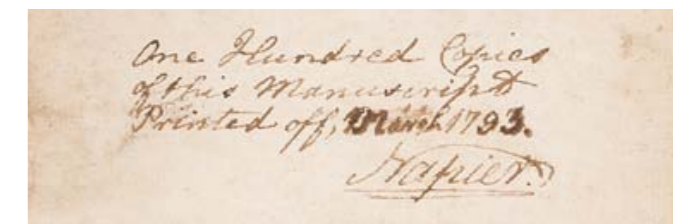 One Hundred Copies
of this Manuscript
Printed off, March 1793.
Napier.